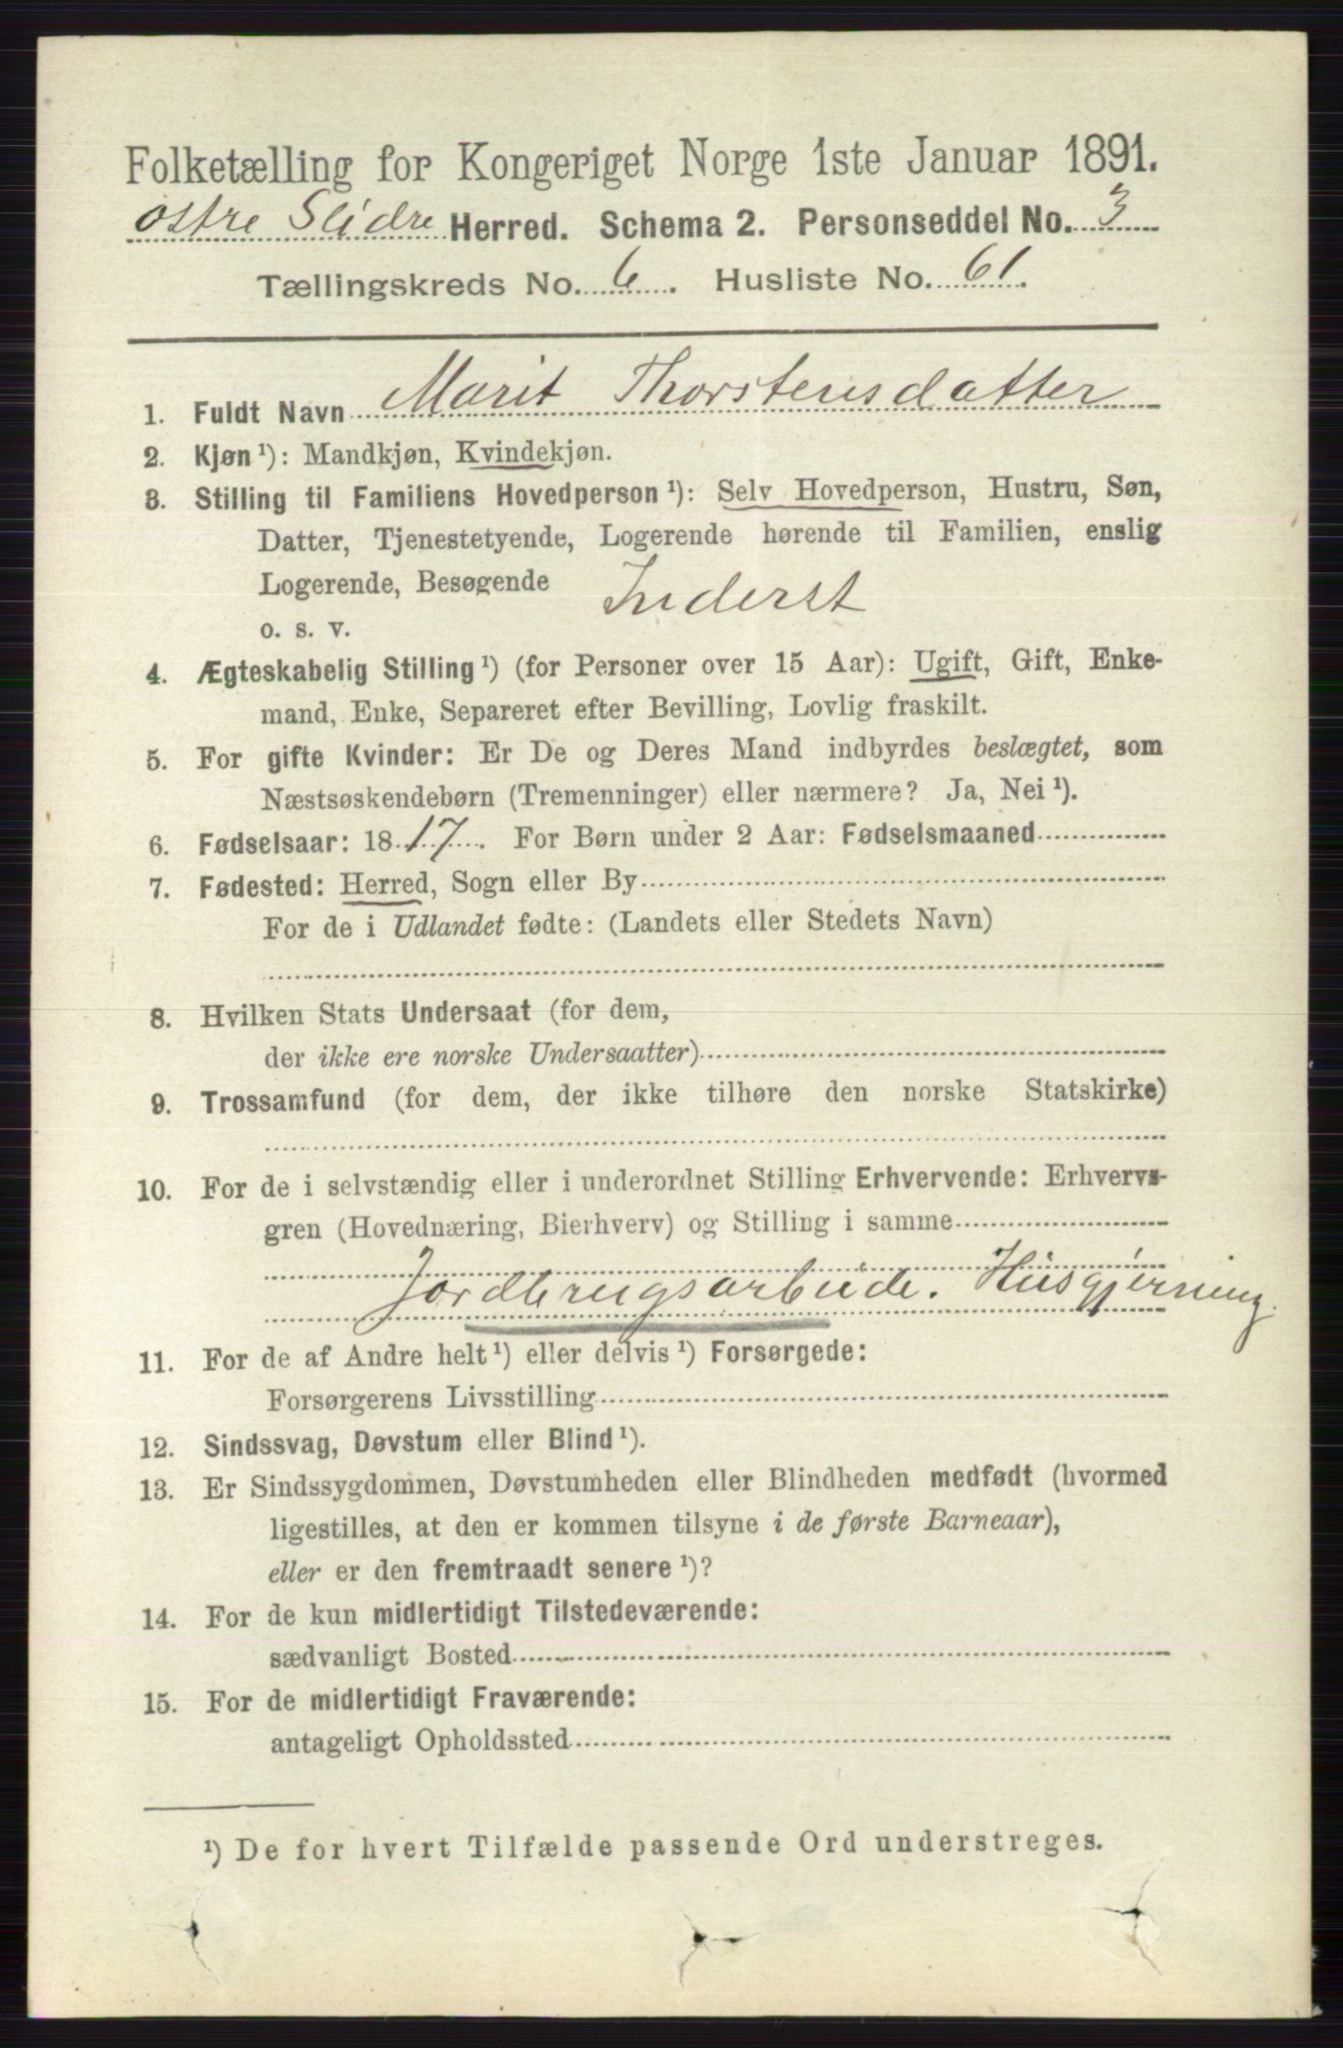 Folketælling for Kongeriget Norge 1ste Januar 1891.
østre Slidre Herred. Schema 2. Personseddel No. 3
Tællingskreds No. 6. Husliste No. 61.
1. Fuldt Navn Marit Thorstensdatter
2. Kjøn ¹): Mandkjøn, Kvindekjøn.
3. Stilling til Familiens Hovedperson ¹): Selv Hovedperson, Hustru, Søn,
Datter, Tjenestetyende, Logerende hørende til Familien, enslig
Logerende, Besøgende Inderst
o. s. v.
4. Ægteskabelig Stilling ¹) (for Personer over 15 Aar): Ugift, Gift, Enke-
mand, Enke, Separeret efter Bevilling, Lovlig fraskilt.
5. For gifte Kvinder: Er De og Deres Mand indbyrdes beslægtet, som
Næstsøskendebørn (Tremenninger) eller nærmere? Ja, Nei ¹).
6. Fødselsaar: 1817. For Børn under 2 Aar: Fødselsmaaned
7. Fødested: Herred, Sogn eller By
For de i Udlandet fødte: (Landets eller Stedets Navn)
8. Hvilken Stats Undersaat (for dem,
der ikke ere norske Undersaatter)
9. Trossamfund (for dem, der ikke tilhøre den norske Statskirke)
10. For de i selvstændig eller i underordnet Stilling Erhvervende: Erhvervs-
gren (Hovednæring, Bierhverv) og Stilling i samme
Jordbrugsarbeide. Husgjerning
11. For de af Andre helt ¹) eller delvis ¹) Forsørgede:
Forsørgerens Livsstilling
12. Sindssvag, Døvstum eller Blind ¹).
13. Er Sindssygdommen, Døvstumheden eller Blindheden medfødt (hvormed
ligestilles, at den er kommen tilsyne i de første Barneaar),
eller er den fremtraadt senere ¹)?
14. For de kun midlertidigt Tilstedeværende:
sædvanligt Bosted
15. For de midlertidigt Fraværende:
antageligt Opholdssted
¹) De for hvert Tilfælde passende Ord understreges.